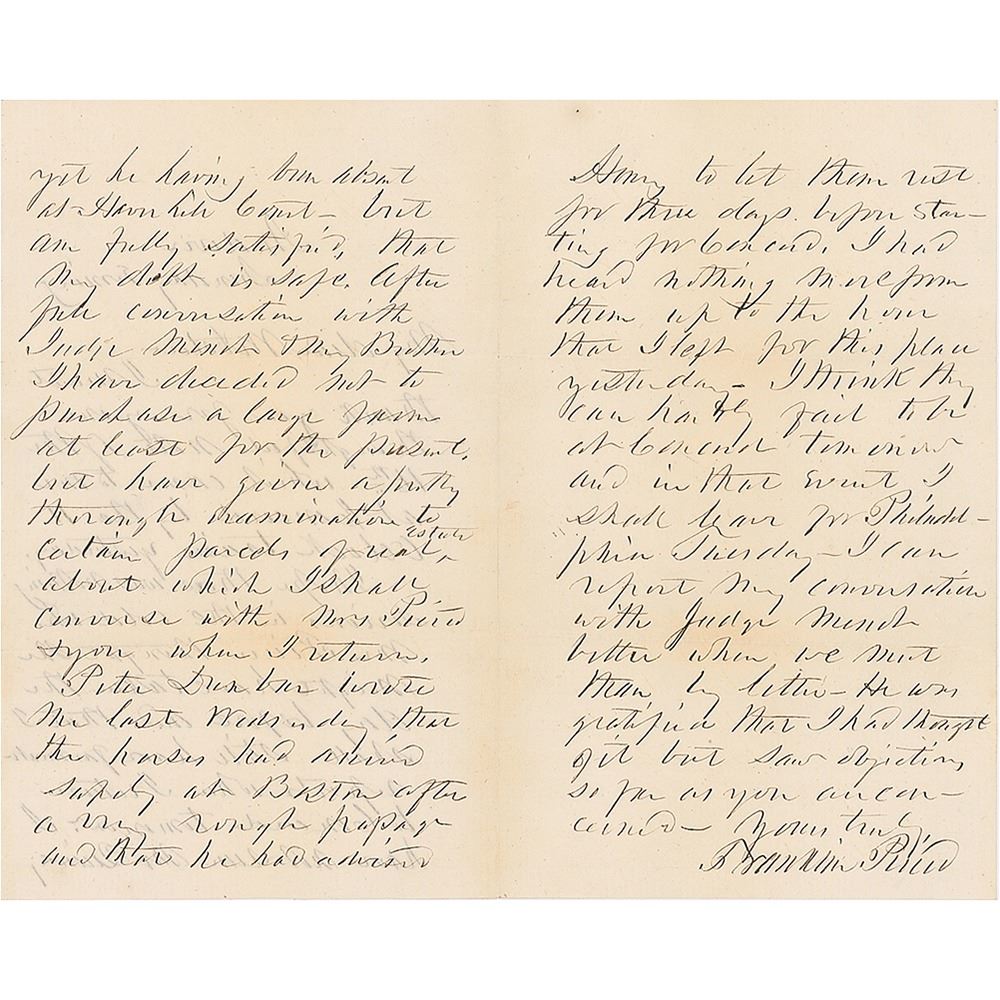 yet he having been absent
at Haverhill Court – but
am fully satisfied, that
my debt is safe. After
full conversation with
Judge Minot & my Brother
I have decided not to
purchase a large farm
at least for the present,
but have given a pretty
thorough examination to
certain parcels of real estate,
about which I shall
converse with Mrs Pierce
& you when I return.
Peter Dunbar wrote
me last Wednesday that
the horses had arrived
safely at Boston after
a very rough passage
and that he had advised
Henry to let them rest
for three days. before star–
ting for Concord. I had
heard nothing more from
them up to the hour
that I left for this place
yesterday – I think they
can hardly fail to be
at Concord tomorrow
and in that event I
shall leave for Philadel–
phia Tuesday – I can
report my conversation
with Judge Minot
better when we meet
than by letter – He was
gratified that I had thought
of it but saw objections
so far as you are con–
cerned – Yours truly,
Franklin Pierce